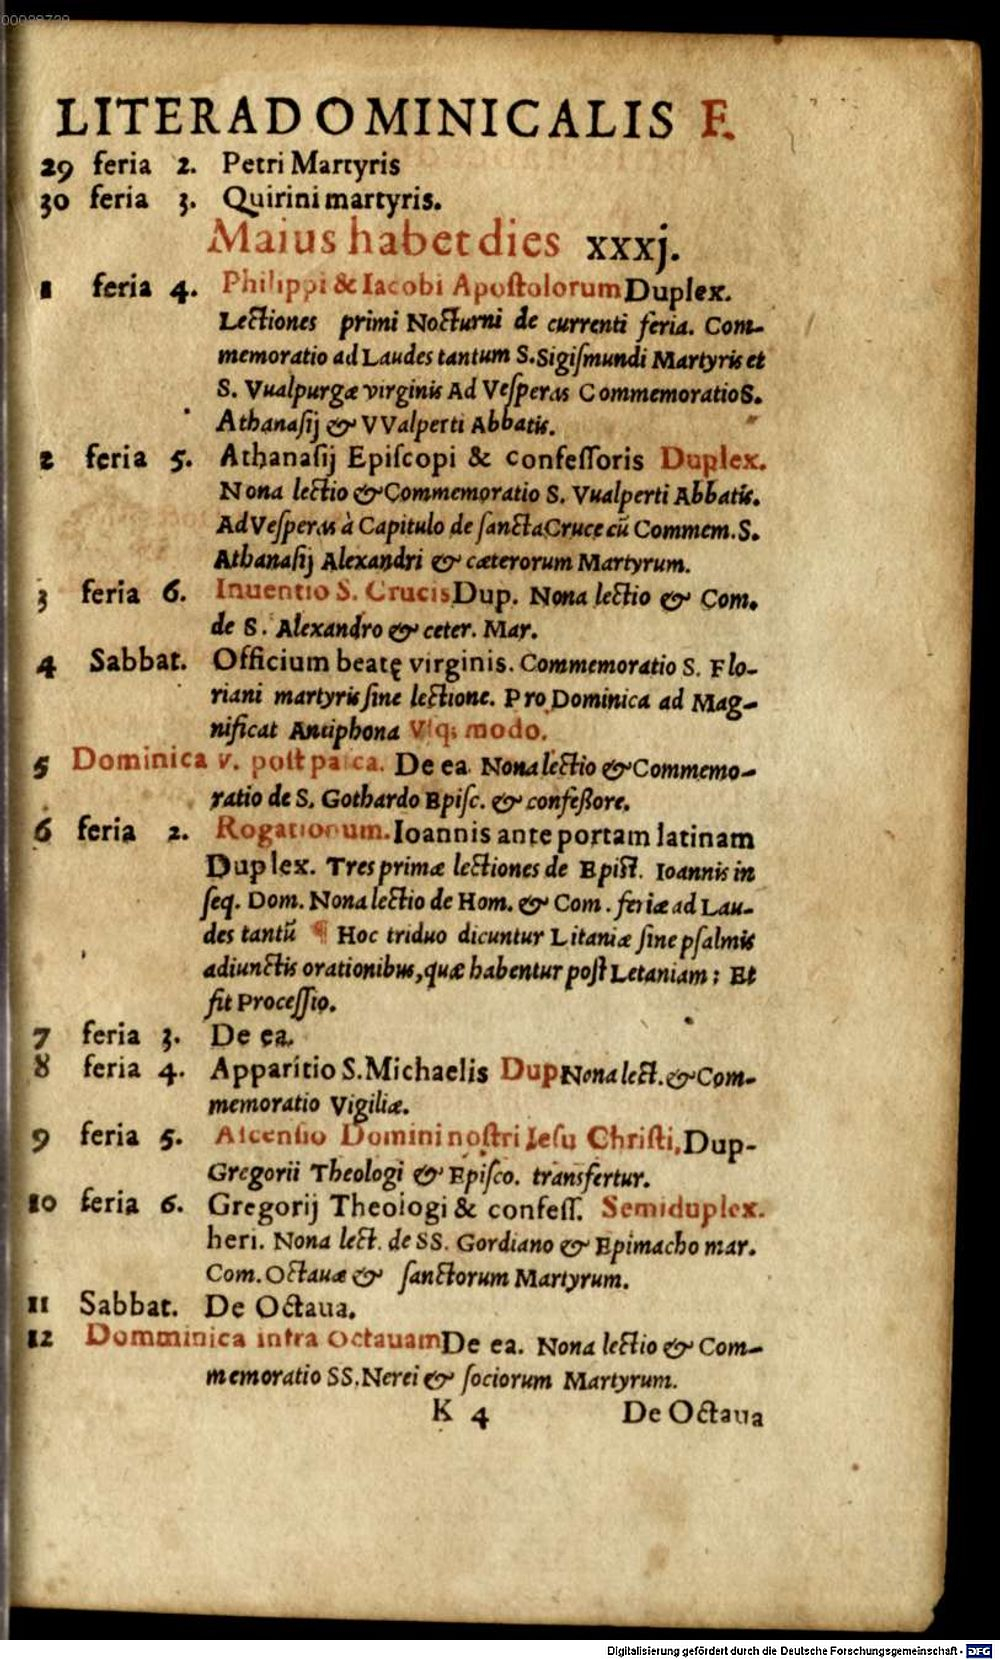 00098739
LITERA DOMINICALIS F.
29 feria 2. Petri Martyris
30 feria 3. Quirini martyris.
Maius habet dies xxxj.
1 feria 4. Philippi & Iacobi Apoſtolorum Duplex.
Lectiones primi Nocturni de currenti feria. Com-
memoratio ad Laudes tantum S. Sigiſmundi Martyris et
S. Vualpurgæ virginis Ad Veſperas Commemoratio S.
Athanaſij & VValperti Abbatis.
2 feria 5. Athanaſij Epiſcopi & confeſſoris Duplex.
Nona lectio & Commemoratio S. Vualperti Abbatis.
Ad Veſperas à Capitulo de ſancta Cruce cū Commem. S.
Athanaſij Alexandri & cæterorum Martyrum.
3 feria 6. Inuentio S. Crucis Dup. Nona lectio & Com.
de S. Alexandro & ceter. Mar.
4 Sabbat. Officium beatę virginis. Commemoratio S. Flo-
riani martyris ſine lectione. Pro Dominica ad Mag-
nificat Antiphona Vſq; modo.
5 Dominica v. poſt paſca. De ea. Nona lectio & Commemo-
ratio de S. Gothardo Epiſc. & confeßore.
6 feria 2. Rogationum. Ioannis ante portam latinam
Duplex. Tres primæ lectiones de Epiſt. Ioannis in
ſeq. Dom. Nona lectio de Hom. & Com. feriæ ad Lau-
des tantū ¶ Hoc triduo dicuntur Litaniæ ſine pſalmis
adiunctis orationibus, quæ habentur poſt Letaniam; Et
fit Proceſſio.
7 feria 3. De ea.
8 feria 4. Apparitio S. Michaelis Dup Nona lect. & Com-
memoratio Vigiliæ.
9 feria 5. Aſcenſio Domini noſtri Ieſu Chriſti, Dup-
Gregorii Theologi & Epiſco. transfertur.
10 feria 6. Gregorij Theologi & confeſſ. Semiduplex.
heri. Nona lect. de SS. Gordiano & Epimacho mar.
Com. Octauæ & ſanctorum Martyrum.
11 Sabbat. De Octaua.
12 Domminica intra Octauam De ea. Nona lectio & Com-
memoratio SS. Nerei & ſociorum Martyrum.
K 4 De Octaua
Digitalisierung gefördert durch die Deutsche Forschungsgemeinschaft - DFG